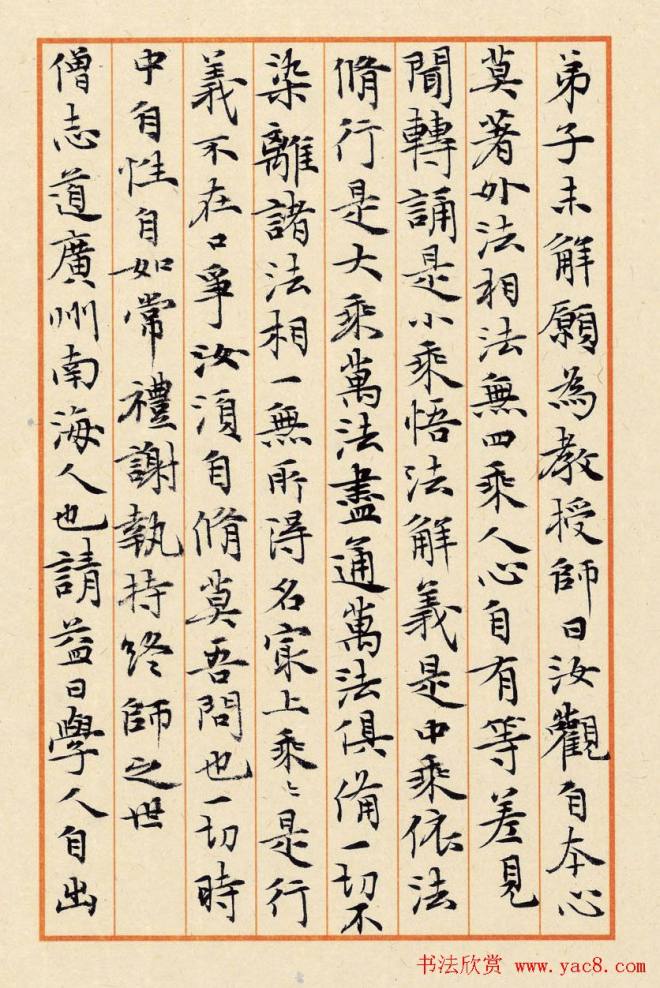 弟子未解願為教授師曰汝觀自本心
莫著外法相法無四乘人心自有等差見
聞轉誦是小乘悟法解義是中乘依法
脩行是大乘萬法盡通萬法俱備一切不
染離諸法相一無所得名冣上乘〻是行
義不在口爭汝須自脩莫吾問也一切時
中自性自如常禮謝執持終師之世
僧志道廣州南海人也請益曰學人自出
书法欣赏 www.yac8.com